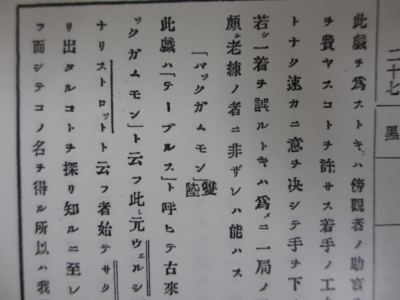 二十七
黒
此戯ヲ爲ストキハ傍觀者ノ助言
ヲ費ヤスコトヲ許サス若手ノ工
トナク速カニ意ヲ決シテ手ヲ下
若シ一着ヲ誤ルトキハ爲メニ一局ノ
頗ル老練ノ者ニ非ザレハ能ハス
「バックガムモン」雙陸
此戯ハ「テーブルス」ト呼ヒテ古來
ックガムモン」ト云フ此レ元ウェルシ
ナリストロットト云フ者始テサク
リ出タルコトヲ探リ知ルニ至レ
フ而シテコノ名ヲ得ル所以ハ我